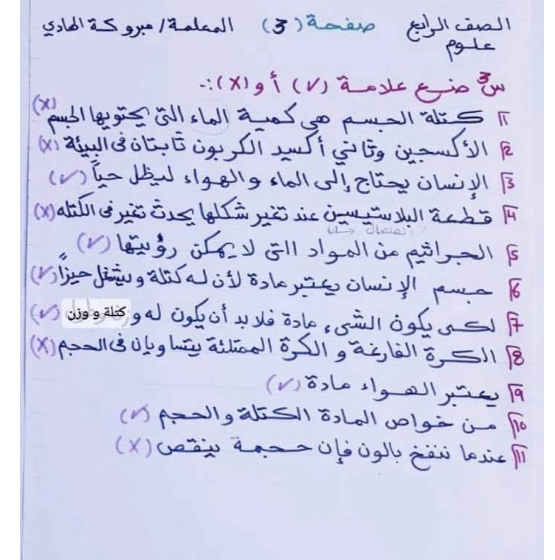 الصف الرابع صفحة (3) المعلمة / مبروكة الهادي
علوم
س3 ضع علامة (√) أو (x) :-
1 كتلة الجسم هي كمية الماء التي يحتويها الجسم (x)
2 الأكسجين وثاني أكسيد الكربون ثابتان في البيئة (x)
3 الإنسان يحتاج إلى الماء والهواء ليظل حياً (√)
4 قطعة البلاستيسين عند تغير شكلها يحدث تغير في الكتله (x)
5 الجراثيم من المواد التى لا يمكن رؤيتها (√)
6 جسم الإنسان يعتبر مادة لأن له كتلة ويشغل حيزاً (√)
7 لكى يكون الشيء مادة فلابد أن يكون له و كتلة و وزن (√)
8 الكرة الفارغة و الكرة الممتلئة يتساويان في الحجم (x)
9 يعتبر الهواء مادة (√)
10 من خواص المادة الكتلة والحجم (√)
11 عندما ننفخ بالون فإن حجمة ينقص (x)